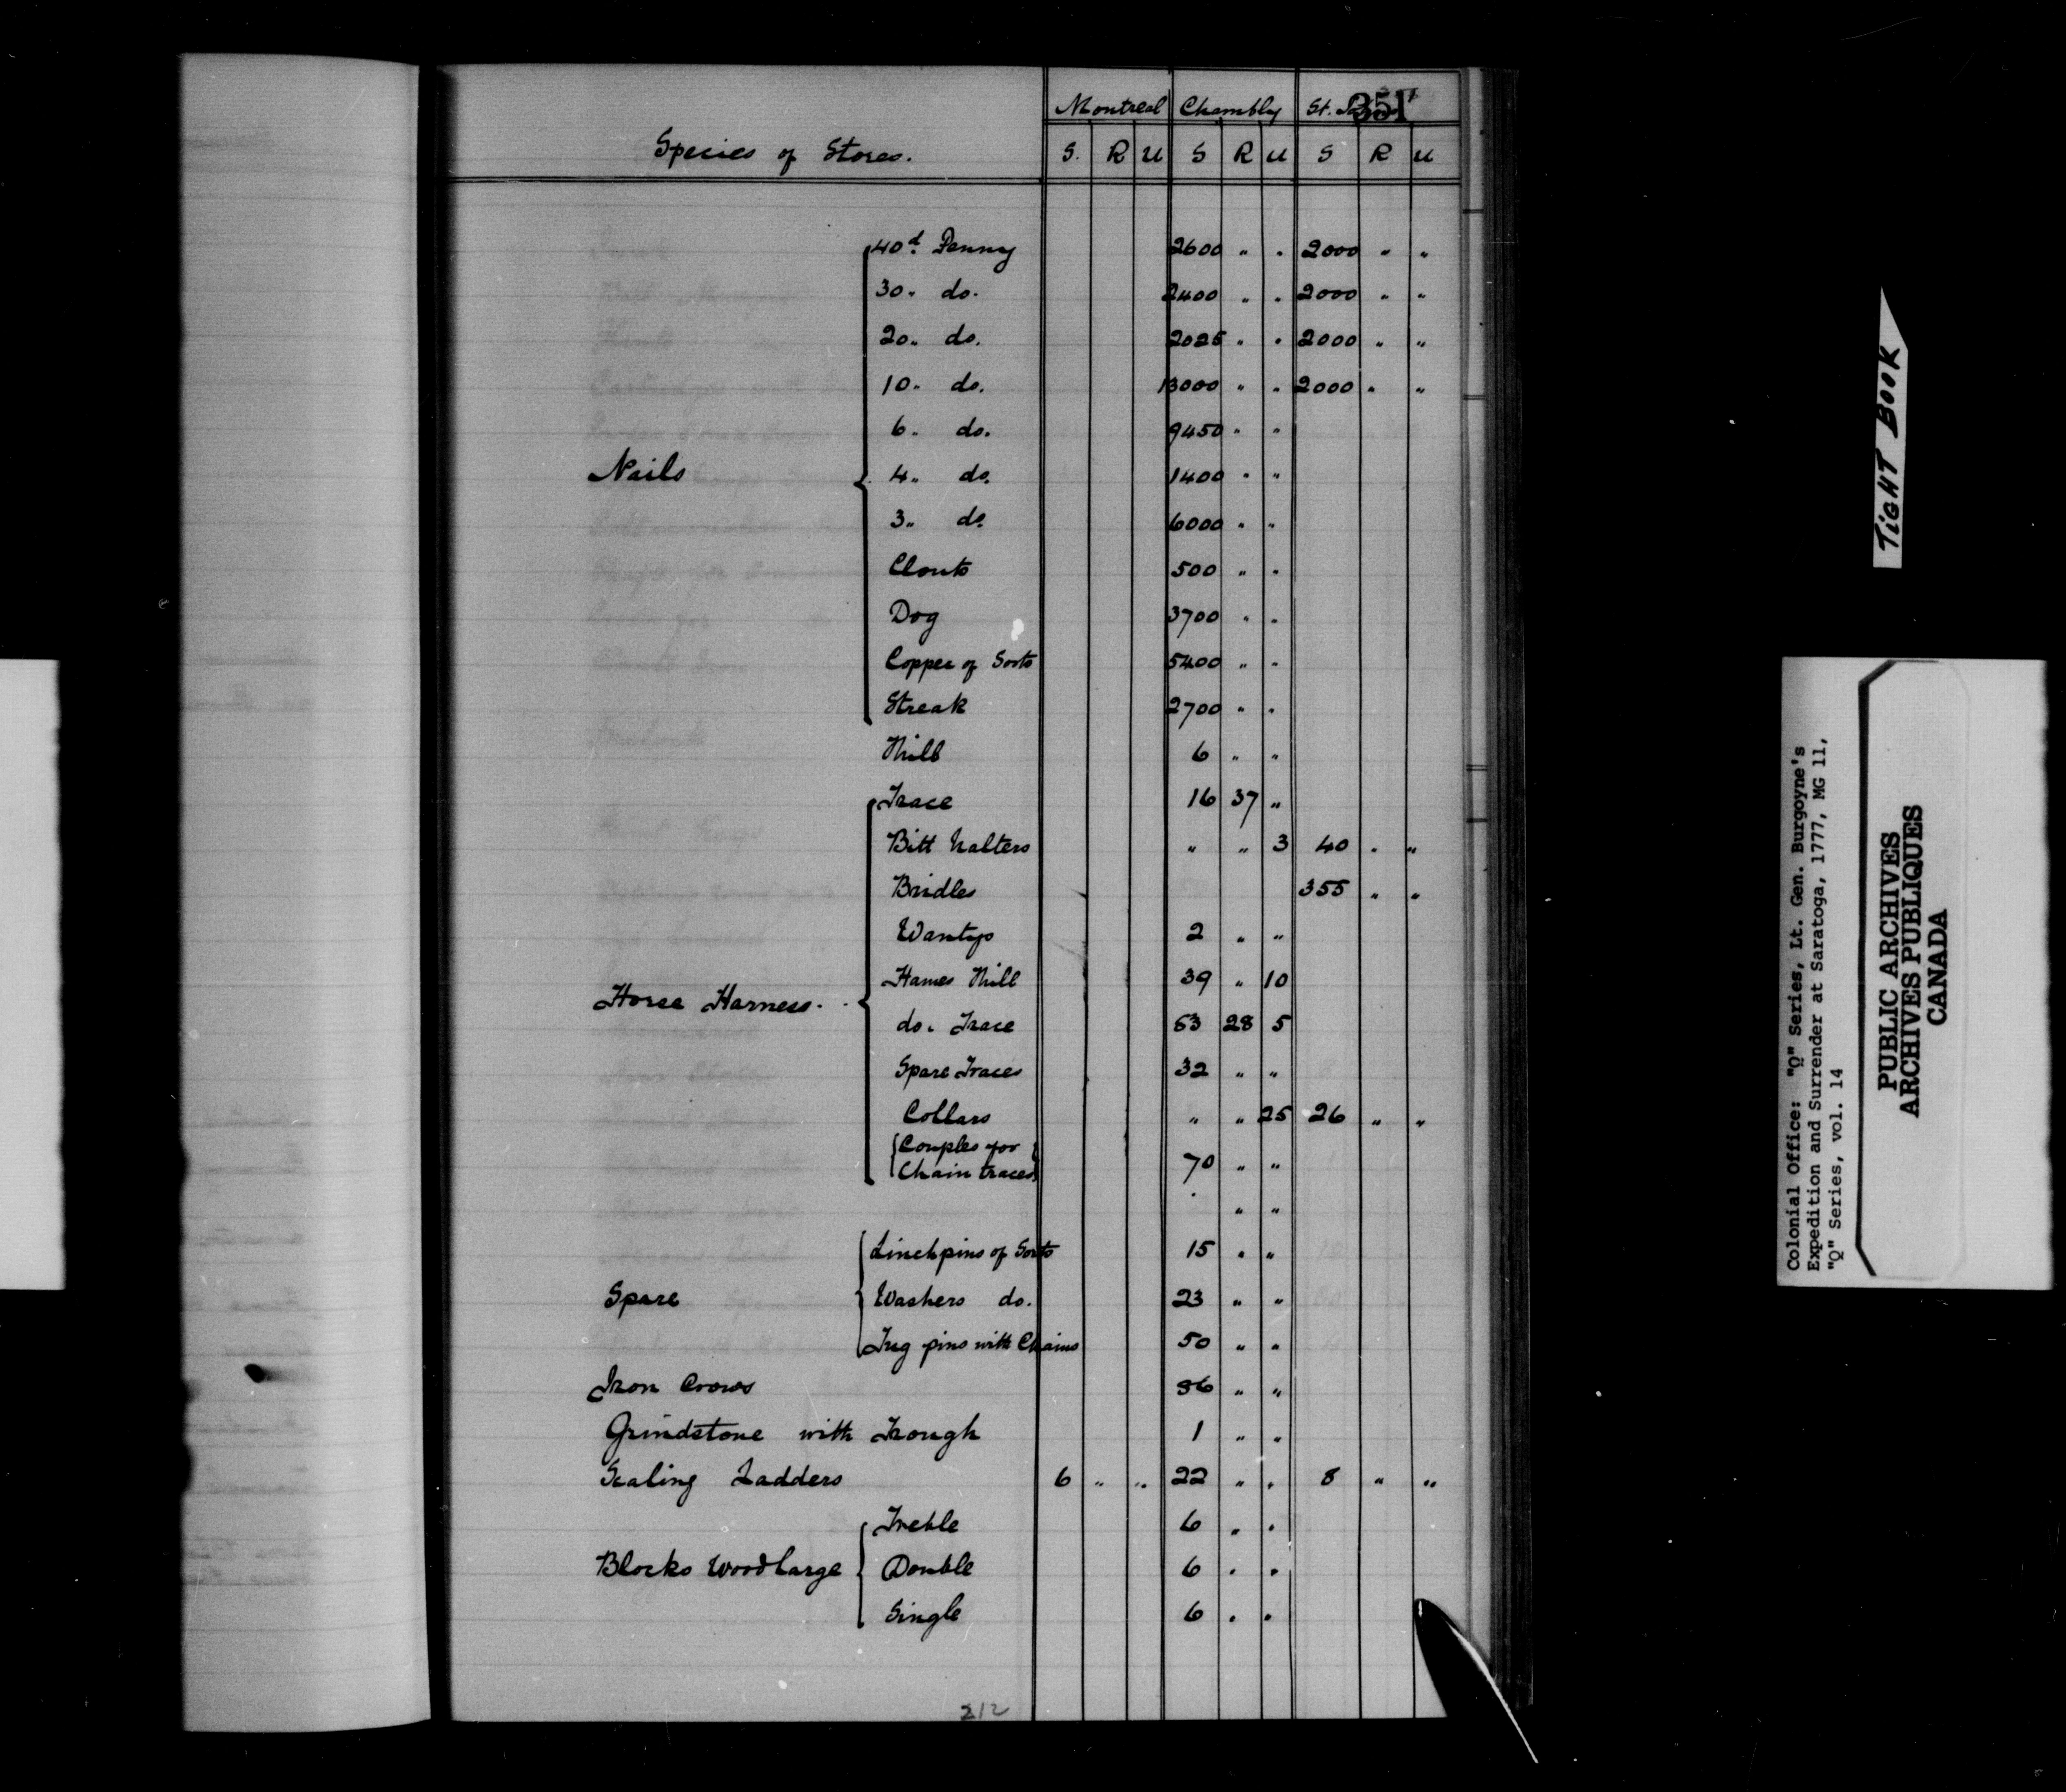 351
Montreal Chambly St.
Species of Stores. S. R U S R U S R U
40d. Penny 2600 " " 2000 " "
30 " do. 2400 " " 2000 " "
20 " do. 2025 " " 2000 " "
10 " do. 13000 " " 2000 " "
6 " do. 9450 " "
Nails 4 " do. 1400 " "
3 " do. 6000 " "
Clouts 500 " "
Dog 3700 " "
Copper of Sorts 5400 " "
Streak 2700 " "
Thill 6 " "
Trace 16 37 "
Bitt halters " " 3 40 " "
Bridles 355 " "
Wantys 2 " "
Hames Thill 39 " 10
Horse Harness. do. Trace 53 28 5
Spare Traces 32 " "
Collars " " 25 26 " "
Couples for
Chain traces 70 " "
" "
Linchpins of Sorts 15 " "
Spare Washers do. 23 " "
Tug pins with Chains 50 " "
Iron Crows 36 " "
Grindstone with Trough 1 " "
Scaling Ladders 6 " " 22 " " 8 " "
Treble 6 " "
Blocks Wood large Double 6 " "
Single 6 " "
212
TIGHT BOOK
Colonial Office: "Q" Series, Lt. Gen. Burgoyne's
Expedition and Surrender at Saratoga, 1777, MG 11,
"Q" Series, vol. 14
PUBLIC ARCHIVES
ARCHIVES PUBLIQUES
CANADA